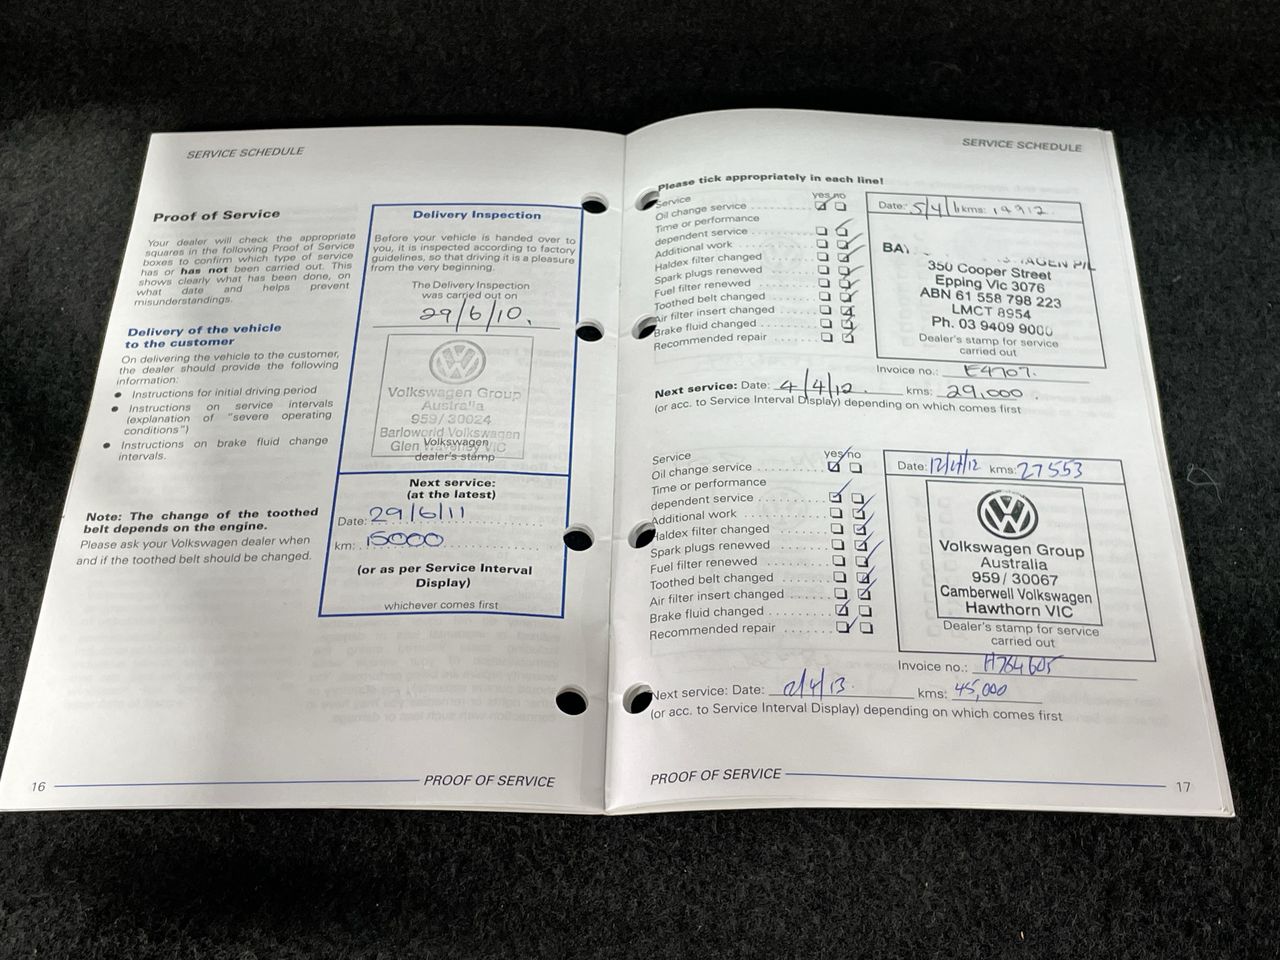 SERVICE SCHEDULE
Proof of Service
Your dealer will check the appropriate
squares in the following Proof of Service
boxes to confirm which type of service
has or has not been carried out. This
shows clearly what has been done, on
what date and helps prevent
misunderstandings.
Delivery of the vehicle
to the customer
On delivering the vehicle to the customer,
the dealer should provide the following
information:
● Instructions for initial driving period
● Instructions on service intervals
(explanation of "severe operating
conditions")
● Instructions on brake fluid change
intervals.
Note: The change of the toothed
belt depends on the engine.
Please ask your Volkswagen dealer when
and if the toothed belt should be changed.
Delivery Inspection
Before your vehicle is handed over to
you, it is inspected according to factory
guidelines, so that driving it is a pleasure
from the very beginning.
The Delivery Inspection
was carried out on
29/6/10.
Volkswagen Group
Australia
959/30024
Barloworld Volkswagen
Glen Waverley VIC
Volkswagen
dealer's stamp
Next service:
(at the latest)
Date: 29/6/11
km: 15000
(or as per Service Interval
Display)
whichever comes first
16
PROOF OF SERVICE
SERVICE SCHEDULE
Please tick appropriately in each line!
Service yes no
Oil change service
Time or performance
dependent service
Additional work
Haldex filter changed
Spark plugs renewed
Fuel filter renewed
Toothed belt changed
Air filter insert changed
Brake fluid changed
Recommended repair
Date: 5/4/11 kms: 14912
350 Cooper Street
Epping Vic 3076
ABN 61 558 798 223
LMCT 8954
Ph. 03 9409 9000
Dealer's stamp for service
carried out
Invoice no.: E4707.
Next service: Date: 4/4/12 kms: 29,000.
(or acc. to Service Interval Display) depending on which comes first
Service yes no
Oil change service
Time or performance
dependent service
Additional work
Haldex filter changed
Spark plugs renewed
Fuel filter renewed
Toothed belt changed
Air filter insert changed
Brake fluid changed
Recommended repair
Date: 12/4/12 kms: 27553
Volkswagen Group
Australia
959/30067
Camberwell Volkswagen
Hawthorn VIC
Dealer's stamp for service
carried out
Invoice no.: H764605
Next service: Date: 12/4/13. kms: 45,000
(or acc. to Service Interval Display) depending on which comes first
PROOF OF SERVICE
17